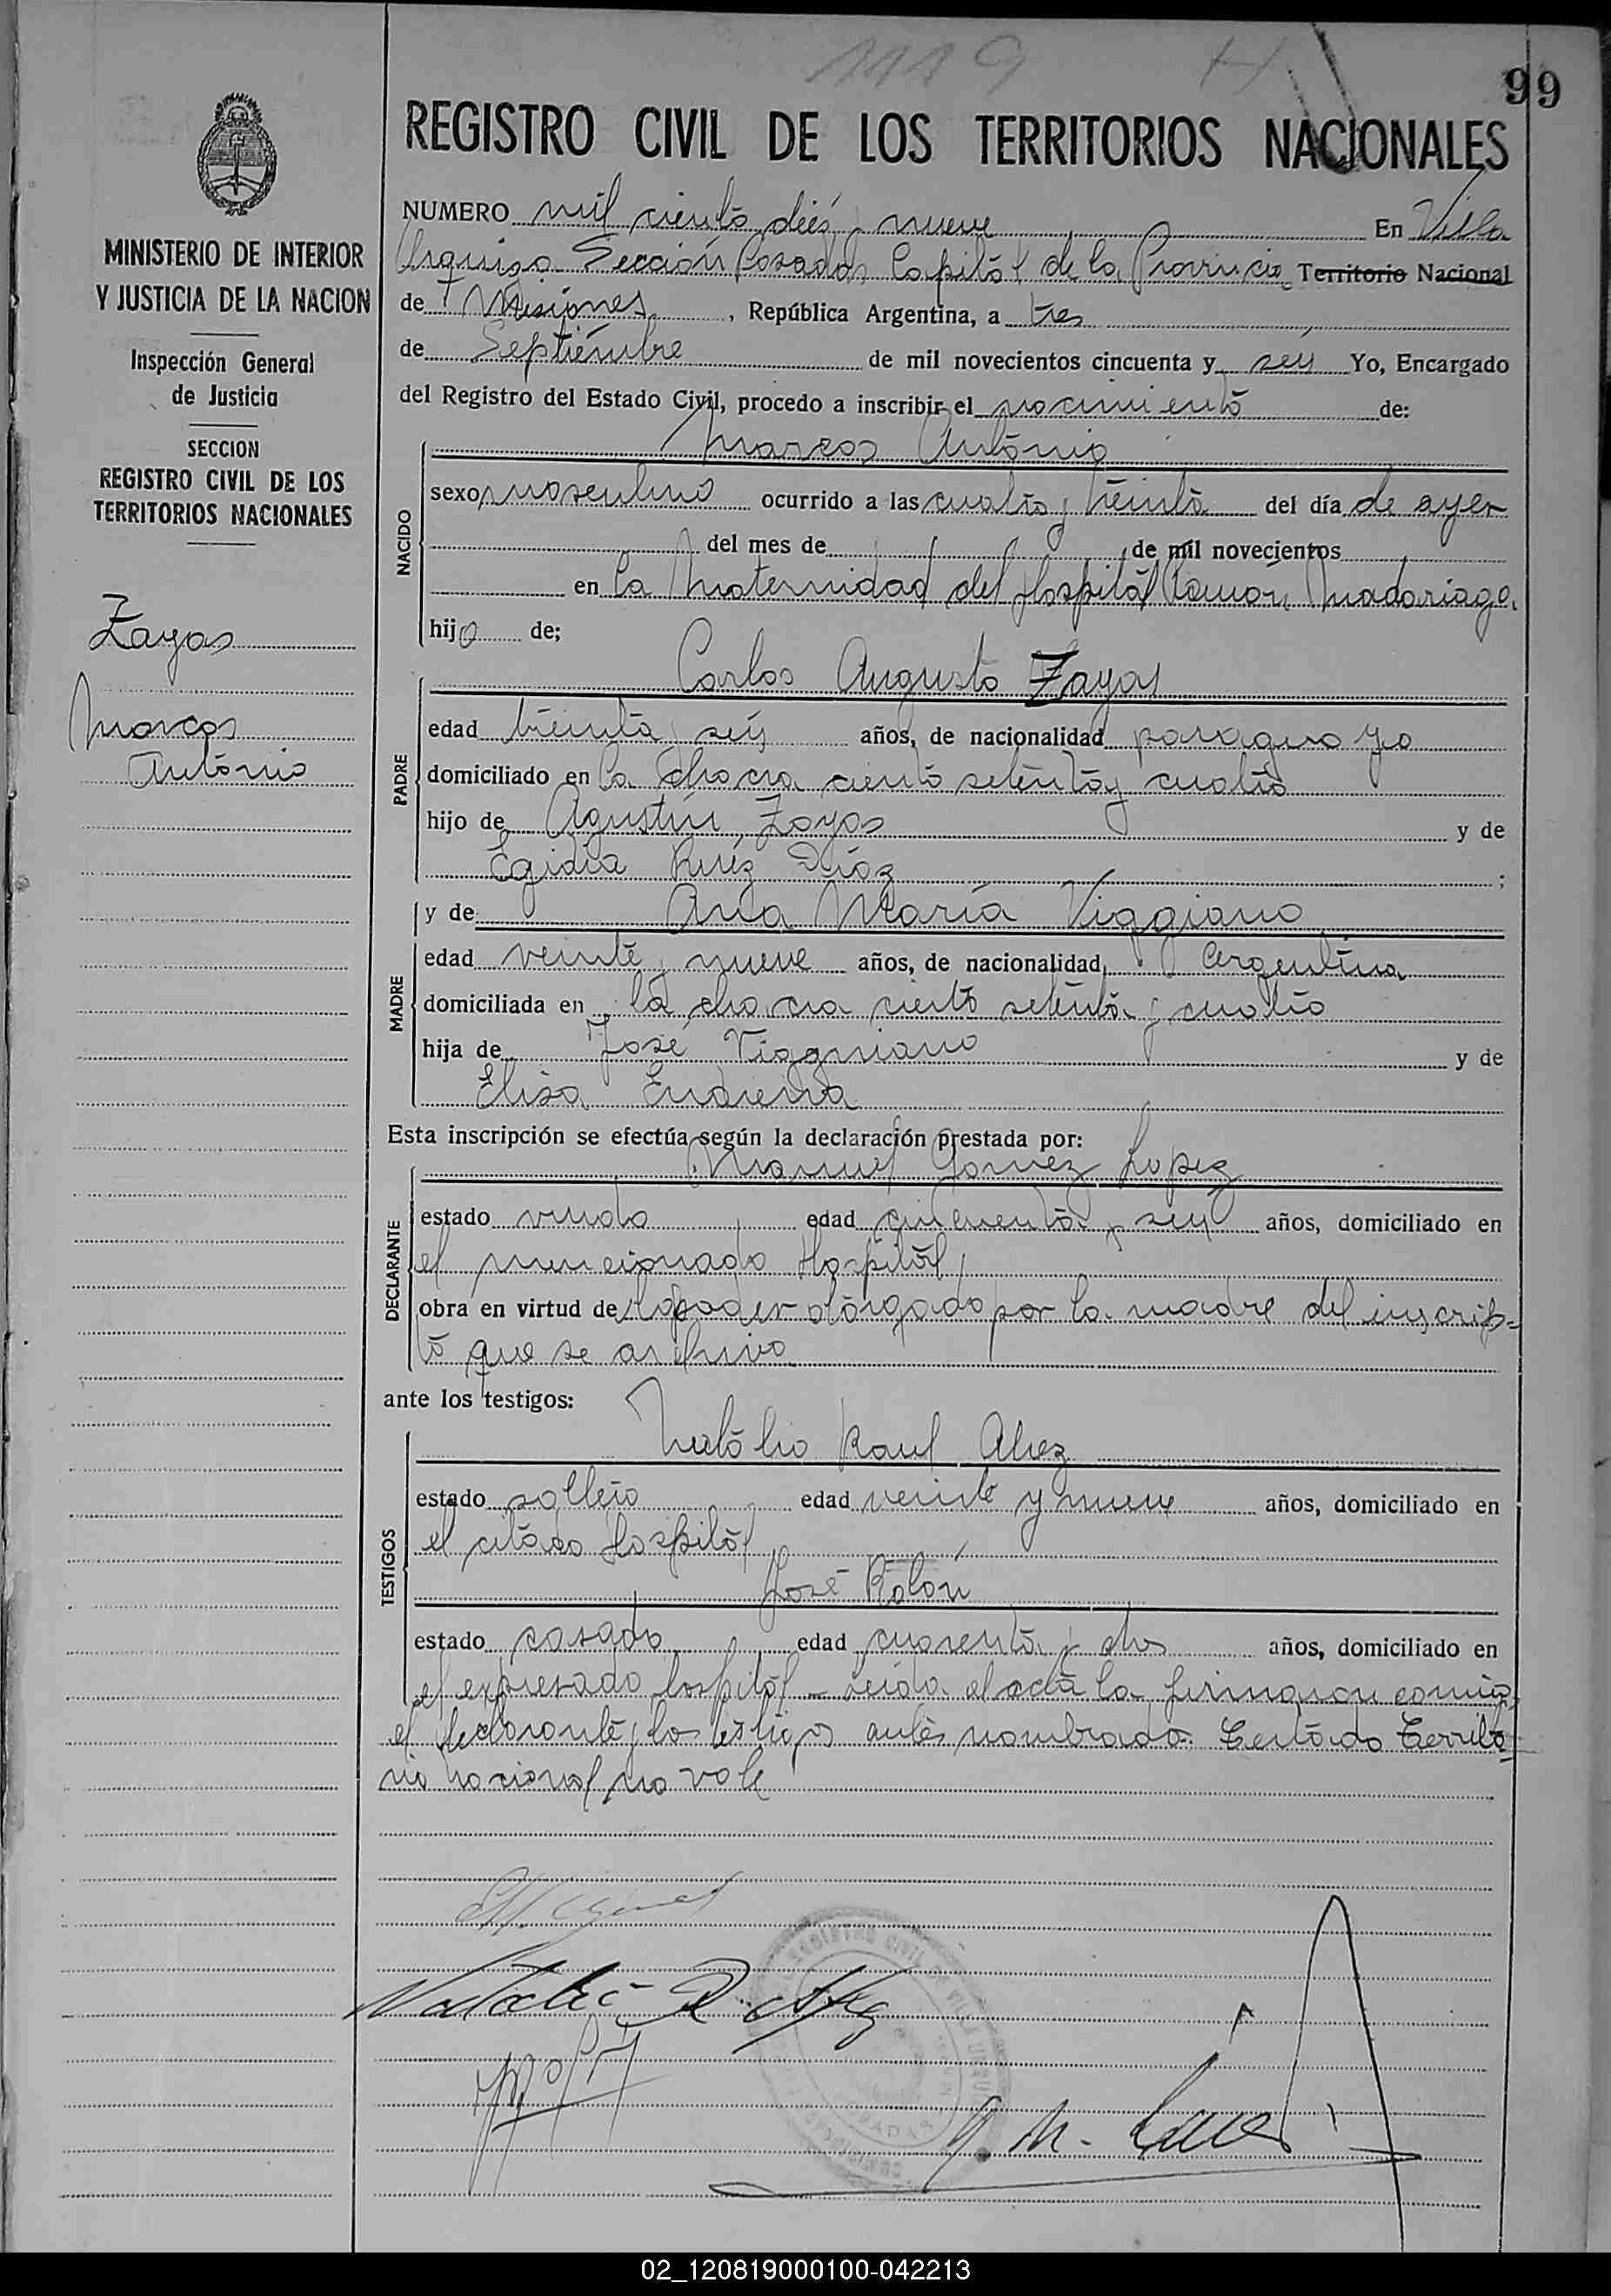 1119
99
REGISTRO CIVIL DE LOS TERRITORIOS NACIONALES
MINISTERIO DE INTERIOR
Y JUSTICIA DE LA NACION
Inspección General
de Justicia
SECCION
REGISTRO CIVIL DE LOS
TERRITORIOS NACIONALES
Zayas
Marcos
Antonio
NUMERO mil ciento diés y nueve En Villa
Urquiza Sección Posadas Capital de la Provincia Territorio Nacional
de Misiones, República Argentina, a tres
de Septiembre de mil novecientos cincuenta y seis Yo, Encargado
del Registro del Estado Civil, procedo a inscribir el nacimiento de:
NACIDO
Marcos Antonio
sexo masculino ocurrido a las cuatro y treinta del día de ayer
del mes de de mil novecientos
en la Maternidad del Hospital Ramón Madariaga,
hijo de;
PADRE
Carlos Augusto Zayas
edad treinta y seis años, de nacionalidad paraguayo
domiciliado en la chacra ciento setenta y cuatro
hijo de Agustín Zayas y de
Egidia Ruíz Díaz ;
MADRE
y de Ana María Viggiano
edad veinte y nueve años, de nacionalidad Argentina
domiciliada en la chacra ciento setenta y cuatro
hija de José Viggniano y de
Elisa
Esta inscripción se efectúa según la declaración prestada por:
DECLARANTE
Manuel Gomez Lopez
estado viudo edad cincuenta y seis años, domiciliado en
el mencionado Hospital
obra en virtud del poder otorgado por la madre del inscrip=
to que se archiva
ante los testigos:
TESTIGOS
Natalio Raul Alvez
estado soltero edad veinte y nueve años, domiciliado en
el citado Hospital
José Rolón
estado casado edad cuarenta y dos años, domiciliado en
el expresado hospital – Leida el acta la firmaron conmigo
el declarante y los testigos antes nombrados. Testado Territo=
rio nacional no vale
Natalio R. Alvez
02_120819000100-042213